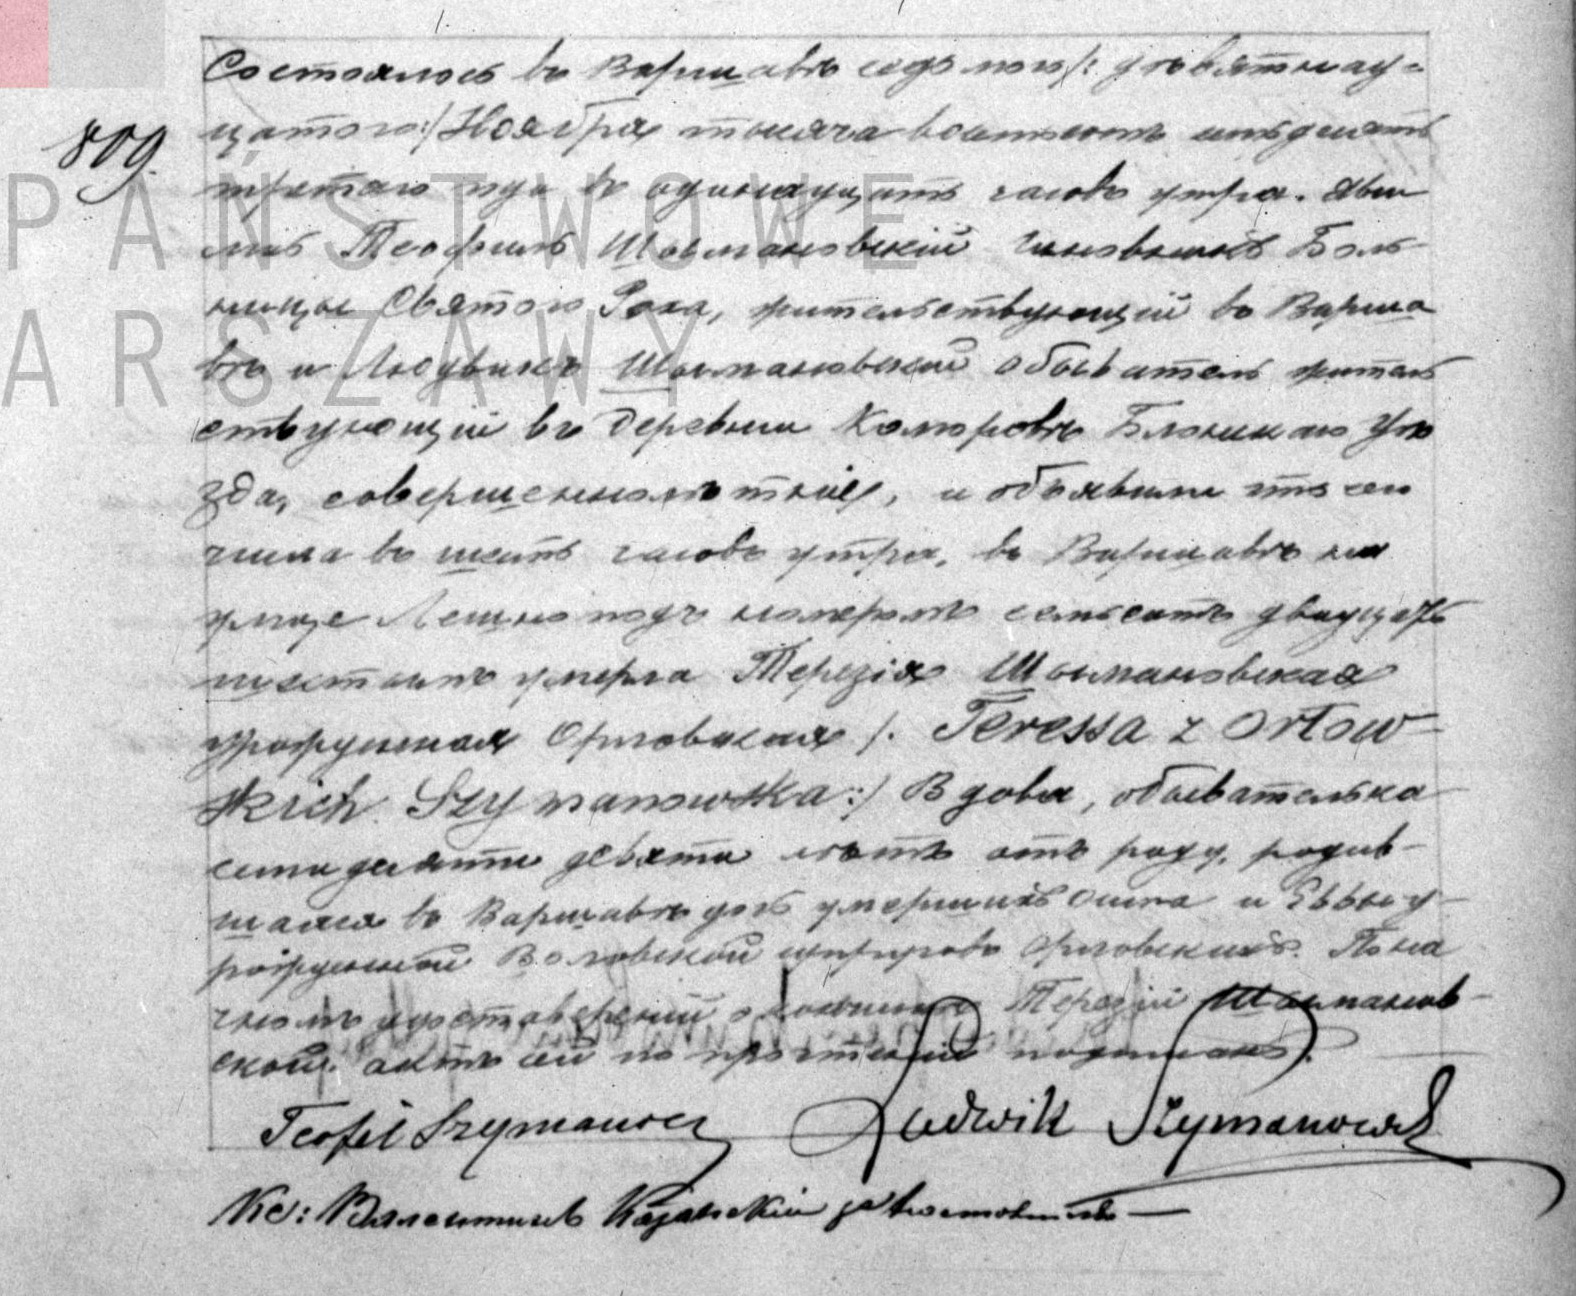 809.
Состоялось въ Варшавѣ седьмого /: девятнад-
цатого:/ Ноября тысяча восемьсотъ семьдесятъ
третьяго года въ одиннадцать часовъ утра. Яви
лись Теофиль Шымановскій чиновникъ Боль-
ницы Святого Роха, жительствующій въ Варша
вѣ и Людвикъ Шымановскій обыватель житель
ствующій въ деревни Коморовѣ Блонскаго Уѣ
зда, совершеннолѣтніе, и объявили что сего
числа въ шесть часовъ утра, въ Варшавѣ на
улице Лешно подъ номеромъ семьсотъ двадцать
шестымъ умерла Терезія Шымановская
урожденная Орловская /: Teressa z Orłow-
skich Szymanowska :/ Вдова, обывателька
семидесяти девяти лѣтъ отъ роду, родив-
шаяся въ Варшавѣ дочь умершихъ и Еввы у-
рожденной Воловской супруговъ Орловскихъ. По на
глядномъ удостовереніи о кончинѣ Терезіи Шыманов-
ской. актъ сей по прочтеніи подписанъ.
Teofil Szymanowski Ludwik Szymanowski
Кс: Валентинъ
PAŃSTWOWE
ARSZAWY